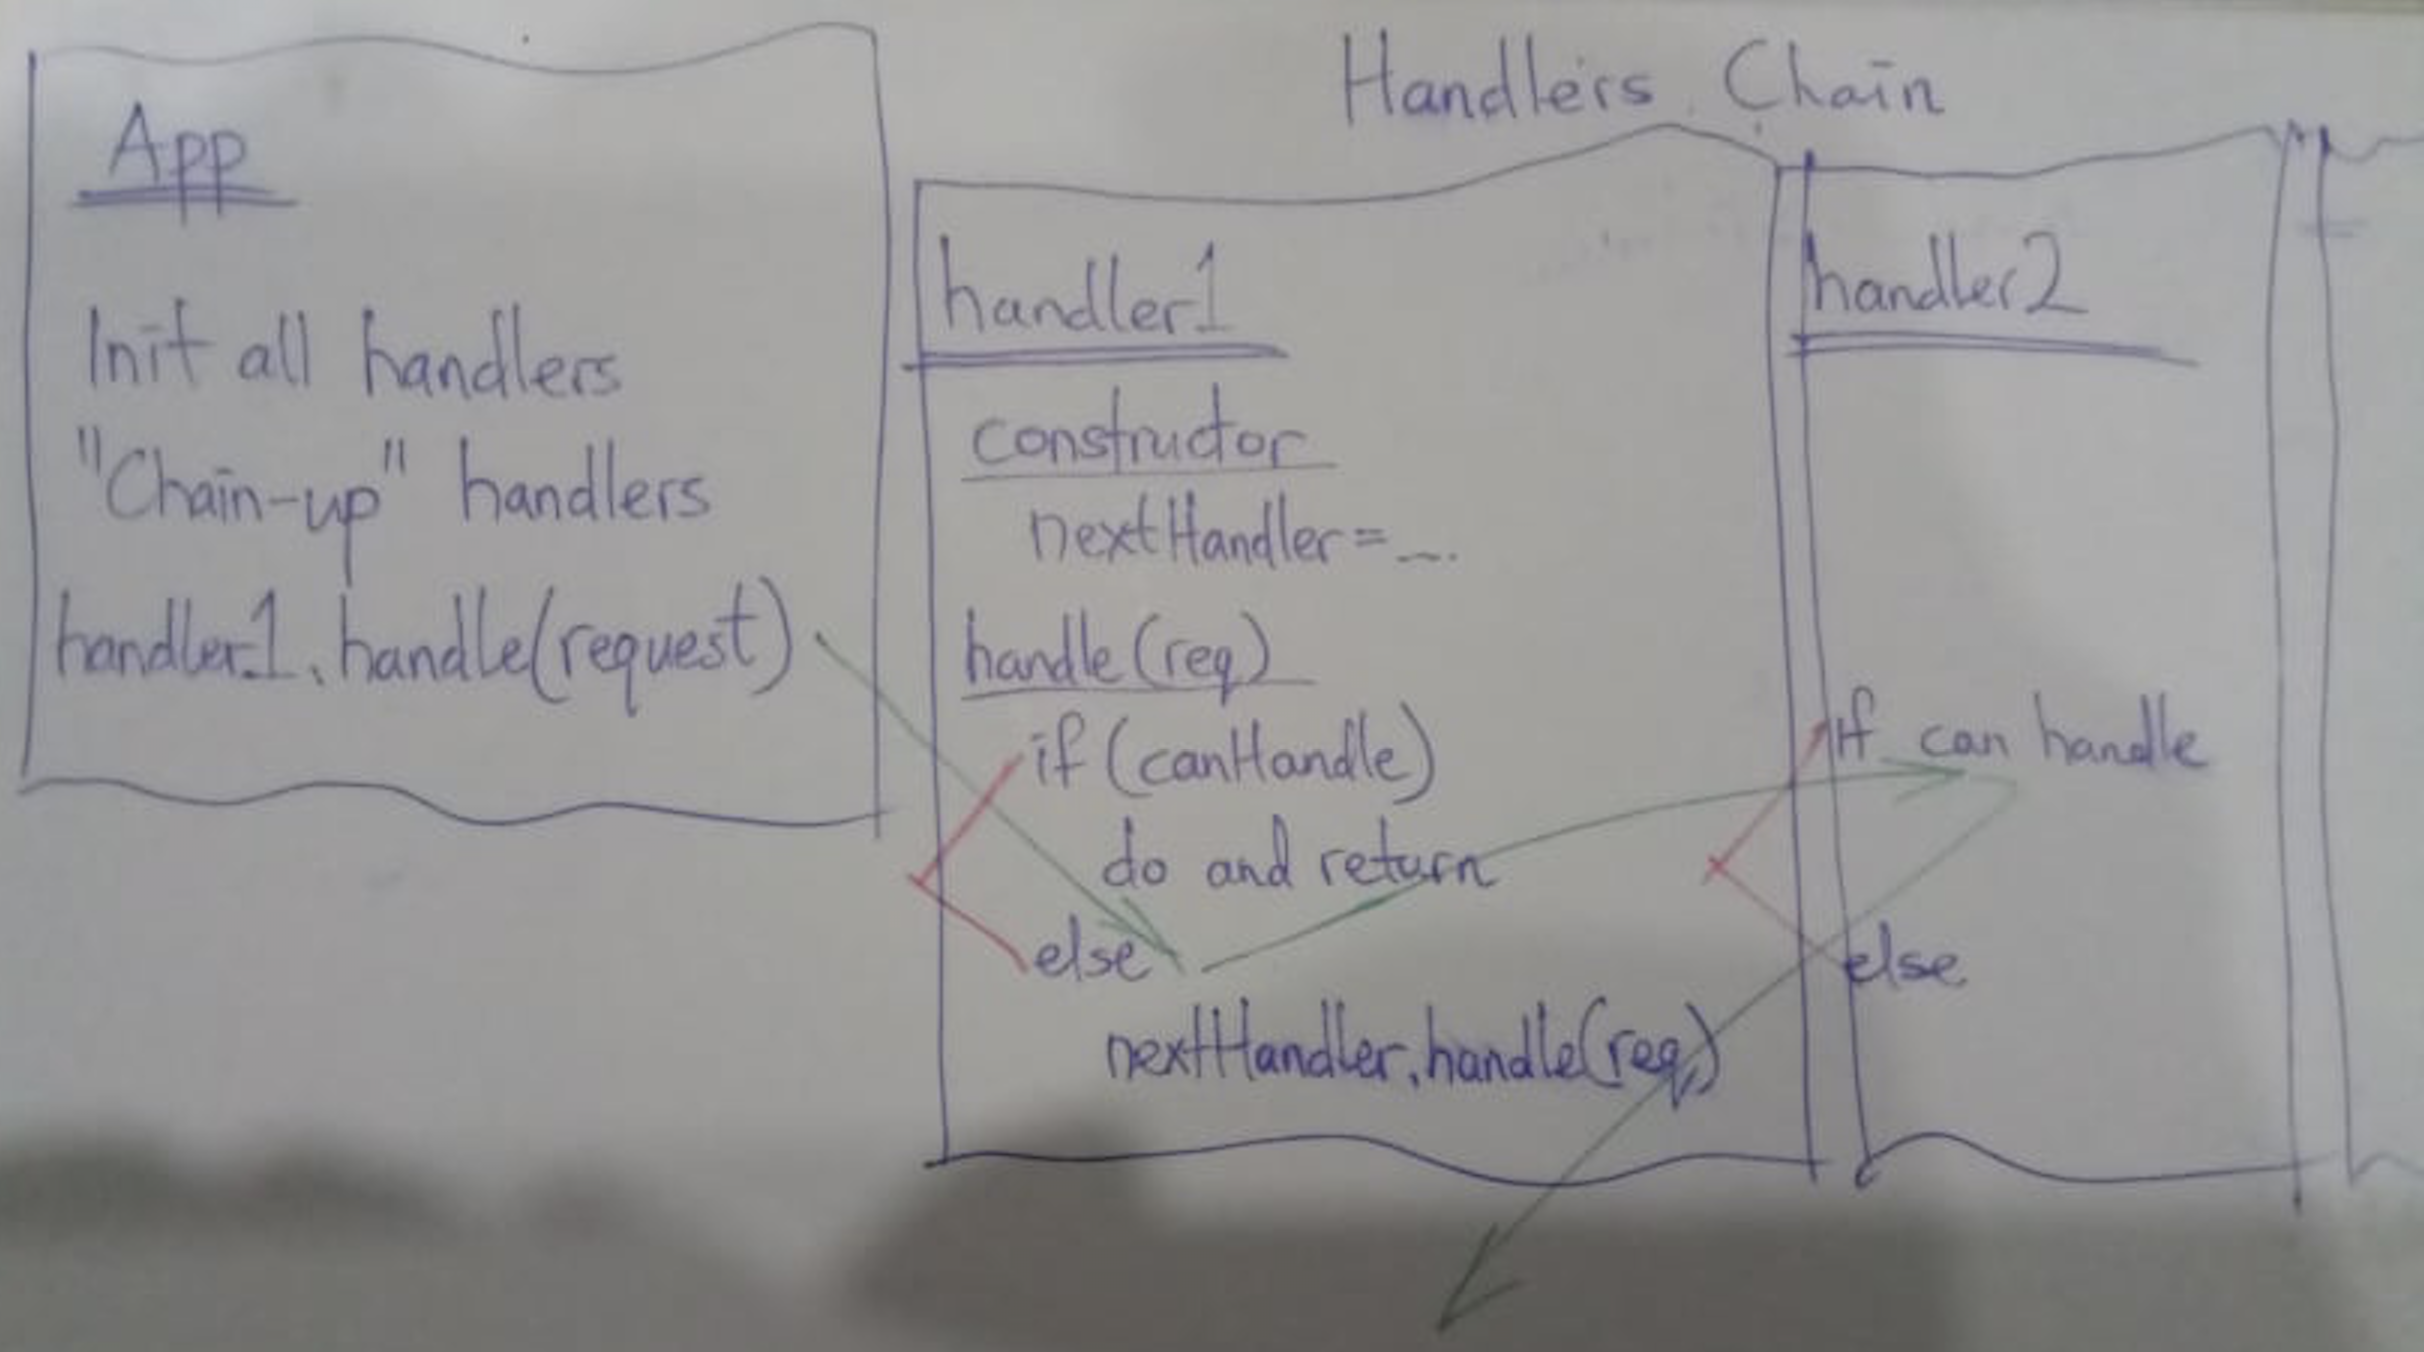 App
Init all handlers
"Chain-up" handlers
handler1.handle(request)
Handlers Chain
handler1
constructor
nextHandler=...
handle(req)
if (canHandle)
do and return
else
nextHandler.handle(req)
handler2
if can handle
else